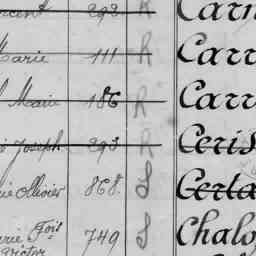 292 R Carn
Marie 111 R Carr
Marie 186 R Carr
Joseph 293 R Ceris
Ollivier 868 S Certa
Fois 749 S Chalo
Victor